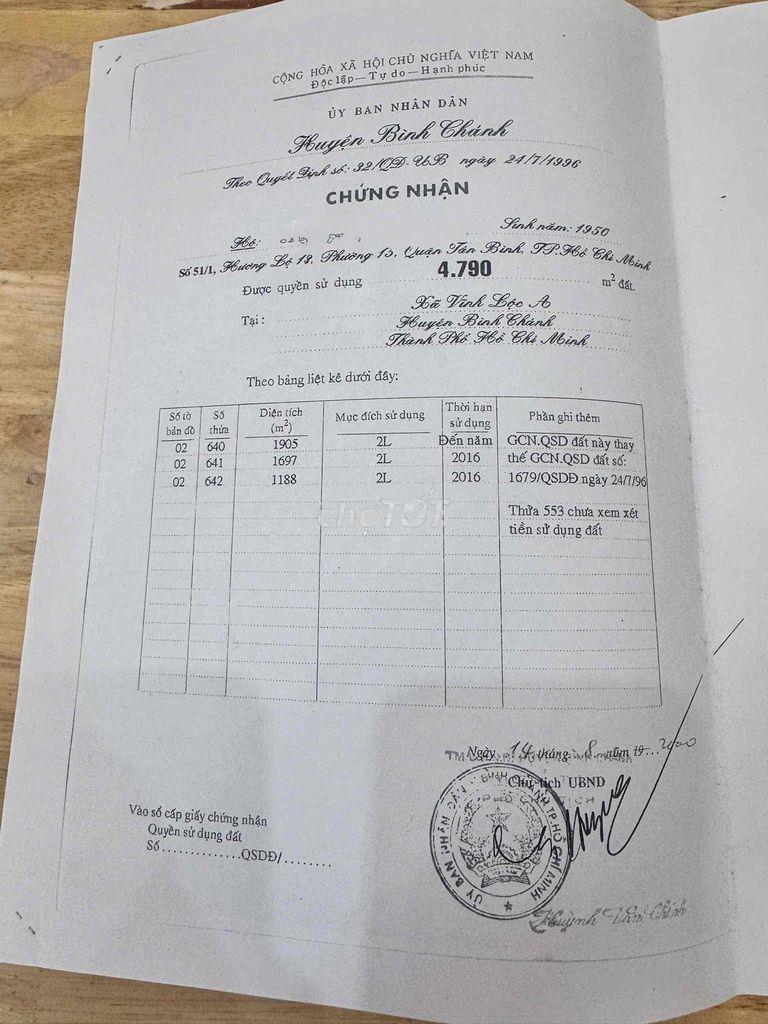 CỘNG HÒA XÃ HỘI CHỦ NGHĨA VIỆT NAM
Độc lập — Tự do — Hạnh phúc
ỦY BAN NHÂN DÂN
Huyện Bình Chánh
Theo Quyết Định số: 32/QD-UB ngày 24/7/1996
CHỨNG NHẬN
Hộ: Sinh năm: 1950
Số 51/1, Hương Lộ 18, Phường 15, Quận Tân Bình, TP.Hồ Chí Minh
Được quyền sử dụng 4.790 m² đất.
Tại: Xã Vĩnh Lộc A
Huyện Bình Chánh
Thành Phố Hồ Chí Minh
Theo bảng liệt kê dưới đây:
Số tờ bản đồ Số thửa Diện tích (m²) Mục đích sử dụng Thời hạn sử dụng Phần ghi thêm
02 640 1905 2L Đến năm GCN.QSD đất này thay
02 641 1697 2L 2016 thế GCN.QSD đất số:
02 642 1188 2L 2016 1679/QSDĐ ngày 24/7/96
chợTỐT
Thửa 553 chưa xem xét
tiền sử dụng đất
Ngày 14 tháng 8 năm 19... 2000
Chủ tịch UBND
Vào sổ cấp giấy chứng nhận
Quyền sử dụng đất
Số..............QSDĐ/........
ỦY BAN NHÂN DÂN H. BÌNH CHÁNH TP.HỒ CHÍ MINH
Huỳnh Văn Chính